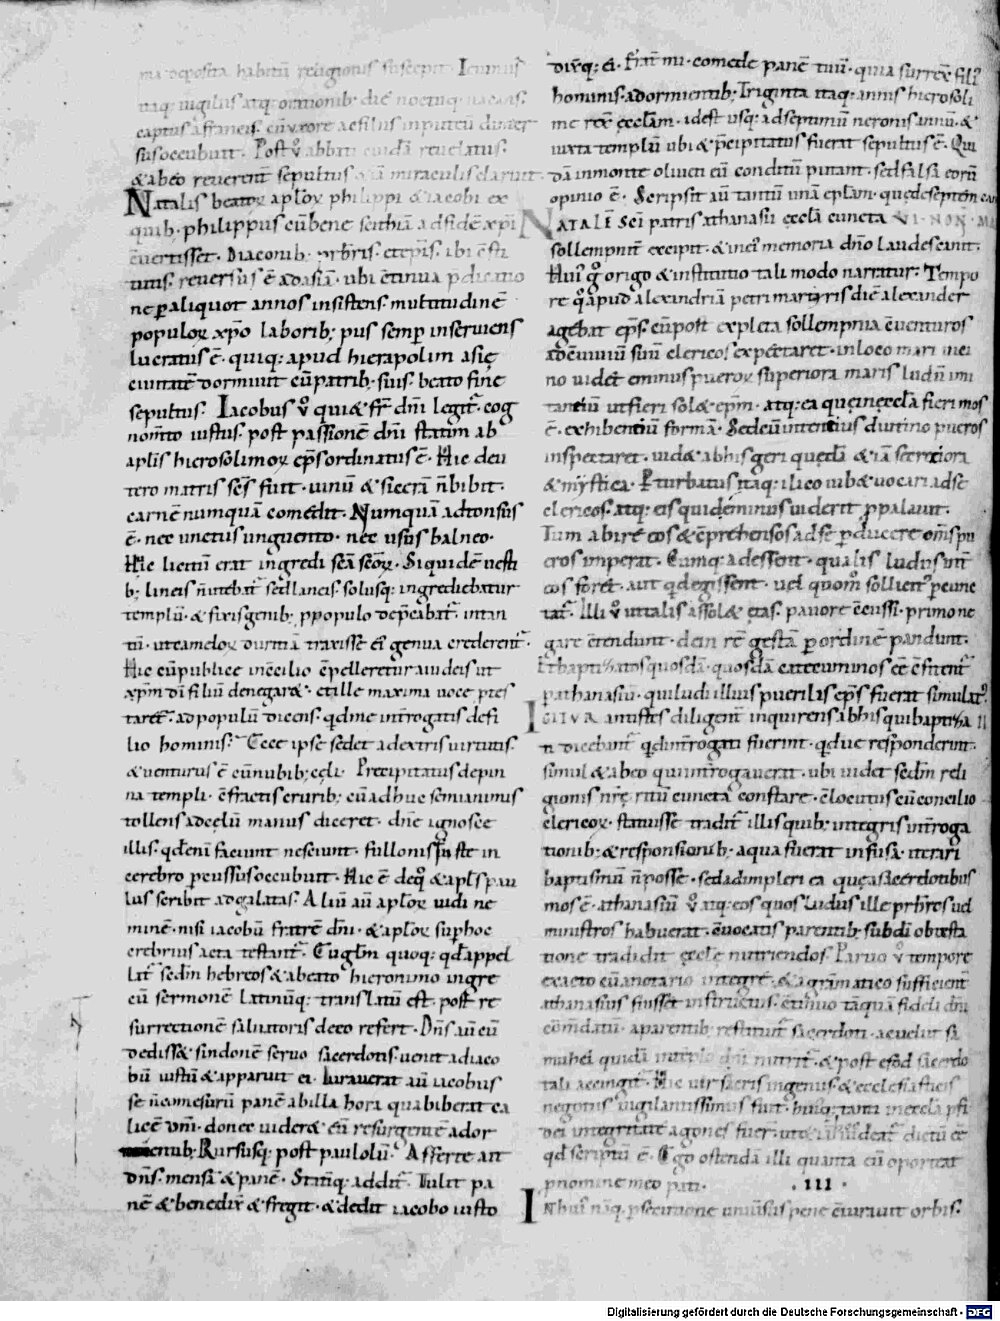 na deposita habitū religionis suscepit. Ieiuniis
itaq; uigiliis atq; orationib; die noctuq; uacans.
captus a francis. cū uxore ac filiis in puteū dimer
sus occubuit. Post u abbati cuidā reuelatus.
& ab eo reuerent sepultus miraculis claruit.
Natalis beatoꝝ aploꝝ philippi & iacobi ex
quib; philippus cū bene scithiā ad fidē xpi
cuertisset. Diaconib; prbris. & epis. ibi csti
tutis. reuersus ē ad asiā. ubi ctinua pdicatio
ne p aliquot annos insistens. multitudinē
populoꝝ xpo laborib; pius semp inseruiens
lucratus ē. quiq; apud hierapolim asię
ciuitatē dormiuit cū patrib; suis. beato fine
sepultus. Iacobus u qui & fr dni legit. cog
nomto iustus. post passionē dni statim ab
aplis hierosolimoꝝ eps ordinatus ē. Hic deu
tero matris scs fuit. uinū & sicerā n bibit.
carnē numquā comedit. Numquā adtonsus
ē. nec unctus unguento. nec usus balneo.
Hic licitū erat ingredi scā scoꝝ. Siquidē uesti
b; lineis n utebat sed laneis. solusq; ingrediebatur
templū. & fixis genib; p populo depcabat. intan
tū. ut cameloꝝ duritiā traxisse ei genua crederent.
Hic cū publice in cilio cpelleretur a iudeis ut
xpm di filiū denegar&. & ille maxima uoce ptes
taret. ad populū dicens. qd me introgatis de fi
lio hominis. Ecce ipse sedet a dextris uirtutis.
& uenturus ē cū nubib; cęli. Precipitatus de pin
na templi. cfractis crurib; cū adhuc semianimus
tollens ad cęlū manus diceret. dne ignosce
illis. qd eni faciunt nesciunt. fullonis fuste in
cerebro pcussus occubuit. Hic ē de q & apls pau
lus scribit ad galatas. Aliū aū aploꝝ uidi ne
minē. nisi iacobū fratrē dni. & aploꝝ sup hoc
crebrius acta testant. Euglm quoq; qd appel
lat sedm hebreos & a beato hieronimo in gre
cū sermonē latinūq; translatū est. post re
surrectionē saluatoris de eo refert. Dns aū cū
dediss& sindonē seruo sacerdotis. uenit ad iaco
bū iustū & apparuit ei. Iurauerat aū iacobus
se n comesurū panē ab illa hora qua biberat ca
licē dni. donec uider& eū resurgentē a dor
mientib; Rursusq; post paulolū. Afferte ait
dns. mensā & panē. Statiq; addit. Tulit pa
nē & benedix & fregit. & dedit iacobo iusto
dixq; ei. Frat mi. comede panē tuū. quia surrex fili
hominis. a dormientib; Triginta itaq; annis hierosoli
me rex ecclam. idest usq; ad septimū neronis annū. &
iuxta templū ubi & pcipitatus fuerat sepultus ē. Qui
dā in monte oliueti eū conditū putant. sed falsa eorū
opinio ē. Scripsit aū tantū unā eplam. que de septem can
NATALE Sci patris athanasii eccla cuncta VI· NON· MA
sollempnit excipit. & inci memoria dno laudes canit.
Hui g origo & institutio tali modo narratur. Tempo
re q apud alexandriā petri martyris diē alexander
agebat eps. cū post expleta sollempnia cuenturos
ad cuiuiū suū clericos expectaret. in loco mari uici
no uidet eminus pueroꝝ supra ora maris ludū imi
tantiū ut fieri sol& epm. atq; ea quę in eccla fieri mos
ē. exhibentiū formā. Sed cū intentius diutino pueros
inspectaret. uid& ab his geri quędā & iā secretiora
& mystica. Pturbatus itaq; ilico iub& uocari ad se
clericos. atq; eis quid eminus uiderit ppalauit.
Tum abire eos & cprehensos ad se pducere oms pu
eros imperat. Cumq; adessent. qualis ludus int
eos foret. aut qd egissent. uel quom sollicit pcunc
tat. Illi u ut talis assol& ętas. pauore cussi. primo ne
gare ctendunt. dein rē gestā p ordinē pandunt.
Et baptizatos quosdā. quosdā catecuminos ēē cfitent
p athanasiū. qui ludi illius puerilis eps fuerat simulat.
IGITUR antistes diligent inquirens ab his qui baptiza
ti dicebant. qd introgati fuerint. qdue responderint.
simul & ab eo qui introgauerat. ubi uidet sedm reli
gionis nre ritū cuncta constare. clocutus cū concilio
clericoꝝ. statuisse tradit illis quib; integris introga
tionib; & responsionib; aqua fuerat infusa. iterari
baptismū n posse. sed adimpleri ea quę a sacerdotibus
mos ē. athanasiū u atq; eos quos ludus ille prbros uel
ministros habuerat. cuocatis parentib; sub di obtesta
tione tradidit eccle nutriendos. Paruo u tempore
exacto cū a notario integre. & a grāmatico sufficient
athanasius fuisset instructus. ctinuo tāquā fidei dni
cōmdatū. a parentib; restituit sacerdoti. ac uelut sa
muhel quidā in templo dni nutrit. & post csod sacerdo
tali accingit. Hic uir sacris ingeniis. & ecclesiasticis
negotiis uigilantissimus fuit. huiq; tanti in eccla p fi
dei integritate agones fuer. ut & dictū ēē
qd scriptū ē. Ego ostendā illi quanta eū oporteat
p nomine meo pati. · III ·
IN hui naq; psecutione uniusus pene ciurauit orbis.
Digitalisierung gefördert durch die Deutsche Forschungsgemeinschaft - DFG